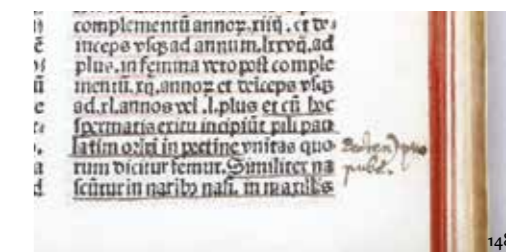 complementū annoꝝ.xiiij. et de-
inceps vſqꝫ ad annum.lxxvij.ad
plus.in femina vero poſt comple
mentū.xij.annoꝝ et deiceps vſqꝫ
ad.xl.annos vel .l.plus et cū hoc
ſpermatis exitu incipiūt pili pau
latim oriri in pectine vnitas quo
rum dicitur femur. Similiter na
ſcūtur in naribꝰ naſi. in maribꝰ
pube.
148